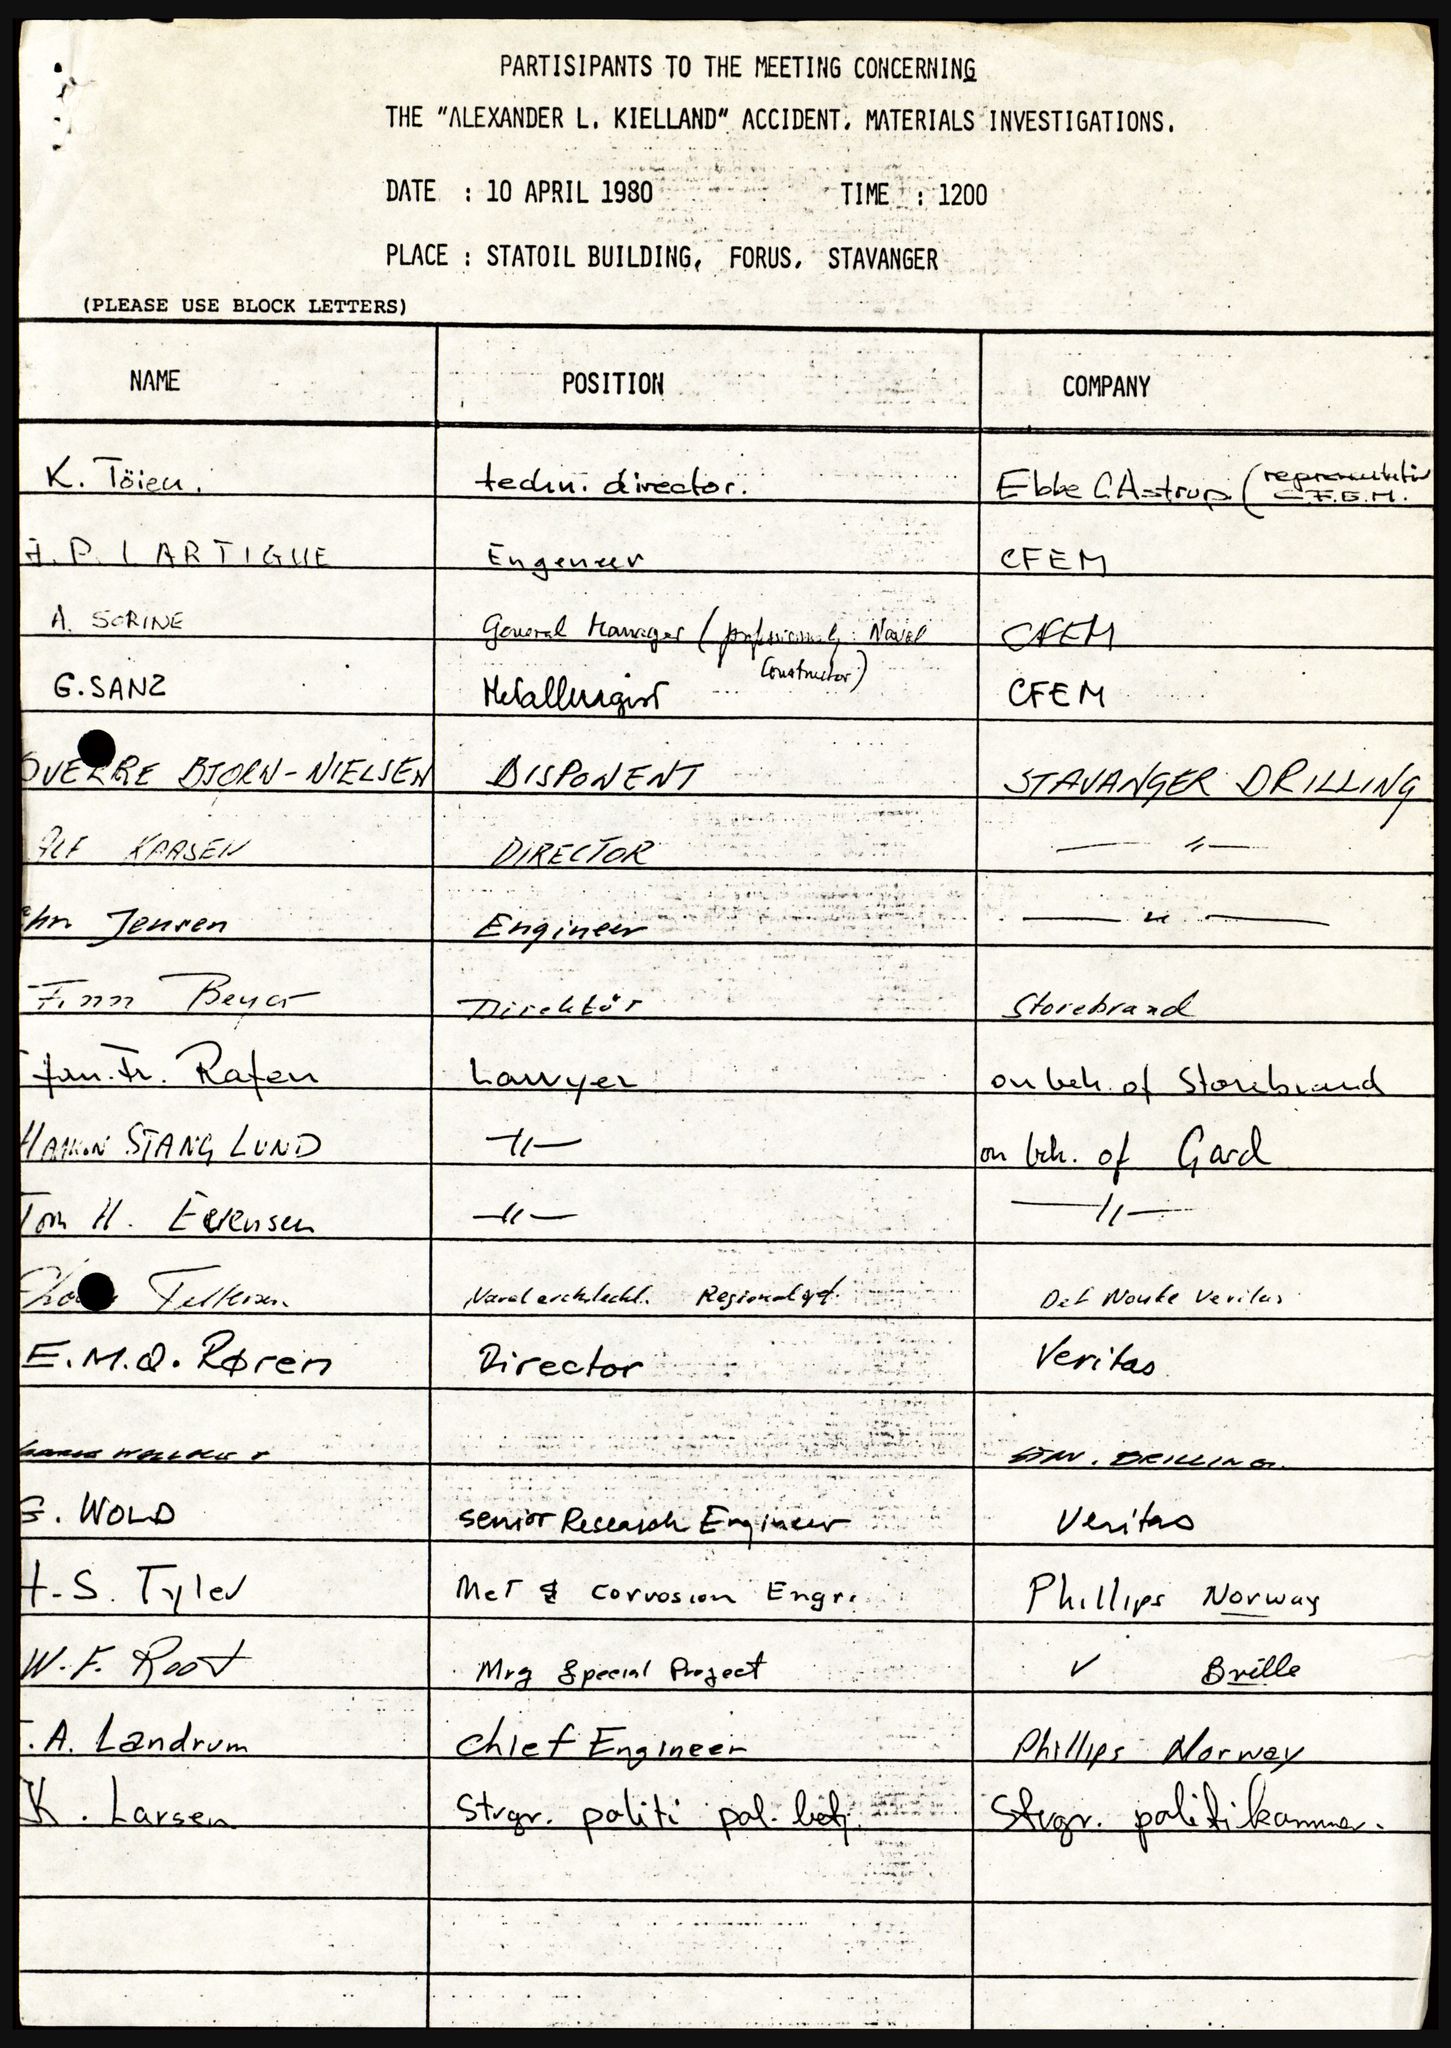 PARTISIPANTS TO THE MEETING CONCERNING
THE "ALEXANDER L. KIELLAND" ACCIDENT. MATERIALS INVESTIGATIONS.
DATE : 10 APRIL 1980 TIME : 1200
PLACE : STATOIL BUILDING, FORUS, STAVANGER
(PLEASE USE BLOCK LETTERS)
NAME POSITION COMPANY
K. Töien. techn. director. Ebbe C Astrup (
J.P. LARTIGUE Engeneer CFEM
A. SORINE General Manager ( professionaly: Naval CFEM
Constructor)
G. SANZ Metallurgist CFEM
BJORN-NIELSEN DISPONENT STAVANGER DRILLING
ALF KAASEN DIRECTOR — " —
Jensen Engineer — " —
Finn Beyer Direktör Storebrand
Jan. Fr. Rafen Lawyer on beh. of Storebrand
HAAKON STANG LUND — " — on beh. of Gard
Tom H. — " — — " —
Naval architect. Regional Det Norske Veritas
E.M.Q. Røren Director Veritas
STAV. DRILLING.
G. WOLD senior Research Engineer Veritas
H.S. Tyler Met & Corrosion Engr. Phillips Norway
W.F. Root Mrg Special Project ✓ Bville
.A. Landrum Chief Engineer Phillips Norway
K. Larsen Stvgr. politi pol. betj. Stvgr. politikammer.